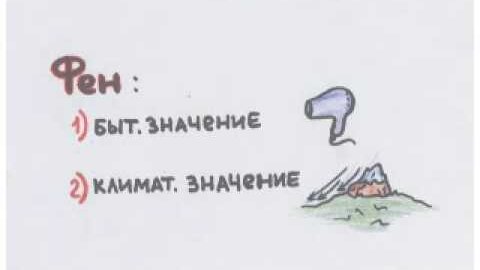 Фен:
1) БЫТ. ЗНАЧЕНИЕ
2) КЛИМАТ. ЗНАЧЕНИЕ